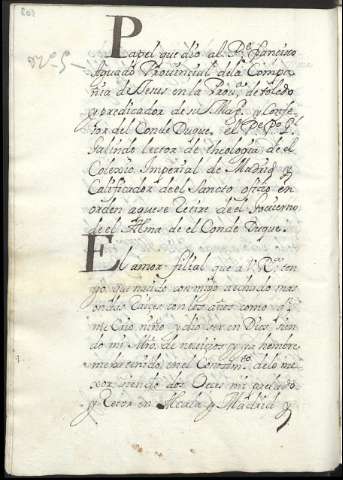 Papel que dio al Pe. francisco
Aguado Provincial de la Compa
ñia de Jesus en la Prova. de toledo
y predicador de su Magd. y Confe
sor del Conde Duque, el Pe. Po. Pl.
Galindo lector de theologia de el
Colegio Imperial de Madrid y
Calificador de el Sancto offiçio en
orden a que se retire de el Govierno
de el Alma de el Conde Duque.
El amor filial que a V. Ra. ten
go, que naçido conmigo a echado mas
ondas raices con los años como a qn.
me crio niño y dio ser en Dios, sien
do mi Mro. de noviçio; y ia hombre
me
siendo dos veces mi prelado
y Retor en Alcala y Madrid y